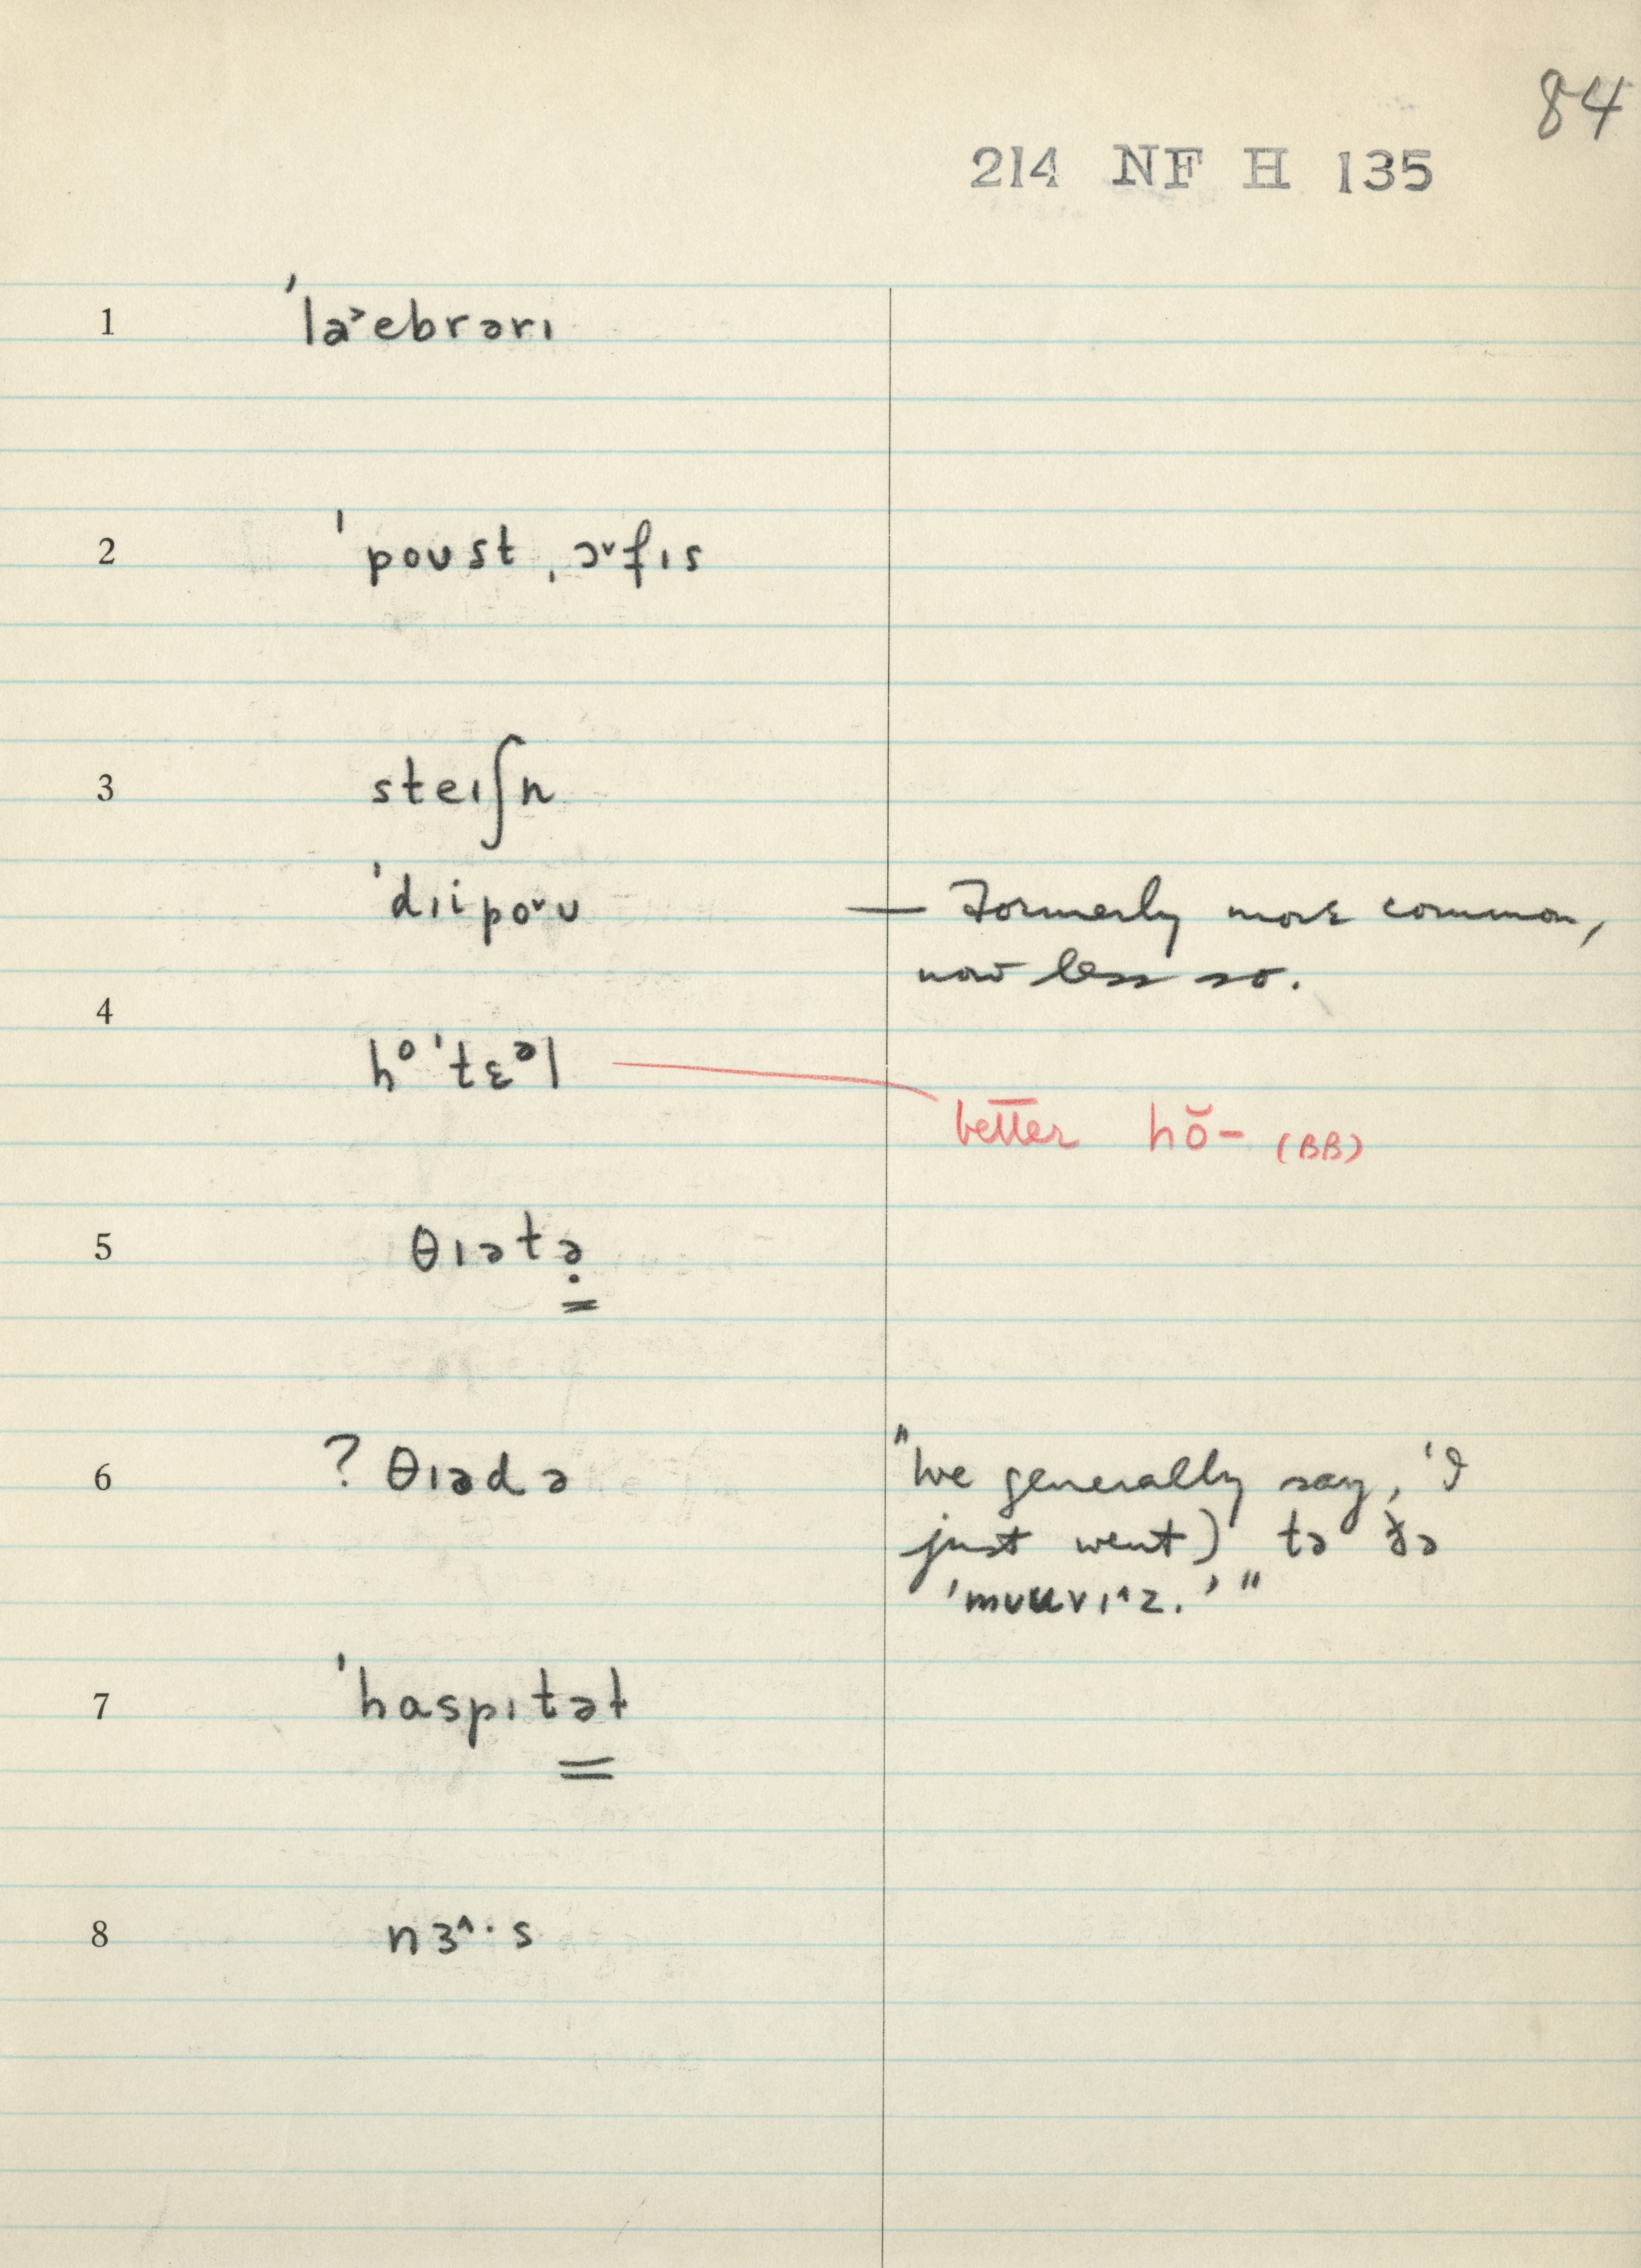 84
214 NF H 135
1 ˈla˃ebrərɪ
2 ˈpoʊst ˌɔ˅fɪs
3 steɪʃn
ˈdɪipo˅ʊ — Formerly more common,
now less so.
4
hᵒˈtɛᵊl
better hŏ- (BB)
5 θɪətə̣
6 ? θɪədə "We generally say, 'I
just went) tə ðə
ˈmʊuvɪ^z.' "
7 ˈhaspɪtəɫ
8 nɜ^·s